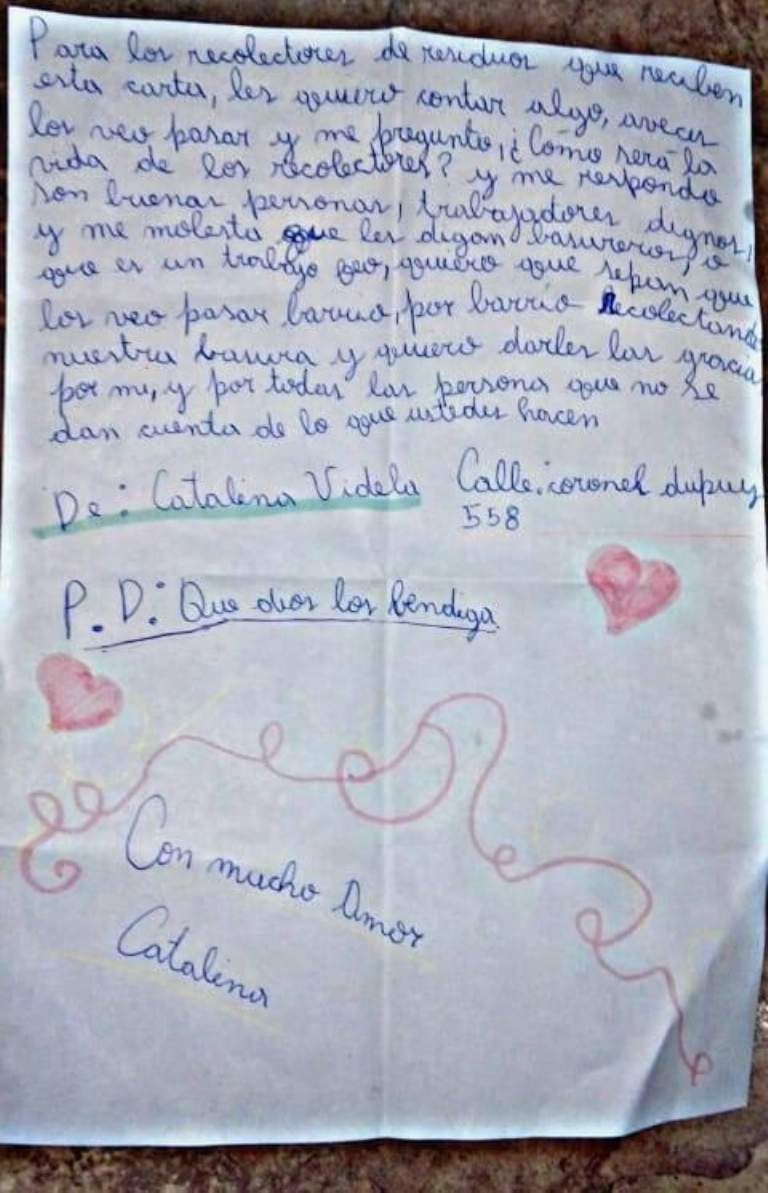 Para los recolectores de residuos que reciben
esta carta, les quiero contar algo, aveces
los veo pasar y me pregunto, ¿Cómo será la
vida de los recolectores? y me respondo
son buenas personas, trabajadores dignos,
y me molesta que les digan basureros, o
que es un trabajo feo, quiero que sepan que
los veo pasar barrio, por barrio Recolectando
nuestra basura y quiero darles las gracia
por mi, y por todas las persona que no se
dan cuenta de lo que ustedes hacen
De: Catalina Videla Calle: coronel dupuy
558
P.D: Que dios los bendiga
Con mucho Amor
Catalina